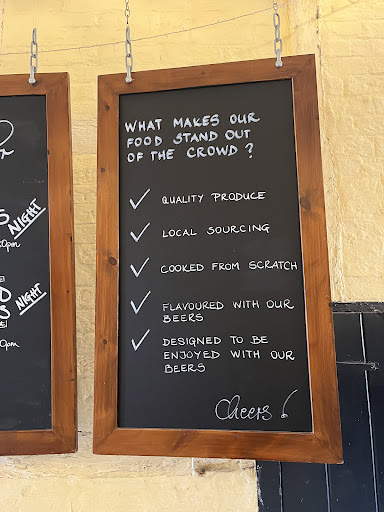 WHAT MAKES OUR
FOOD STAND OUT
OF THE CROWD?
QUALITY PRODUCE
LOCAL SOURCING
COOKED FROM SCRATCH
FLAVOURED WITH OUR
BEERS
DESIGNED TO BE
ENJOYED WITH OUR
BEERS
Cheers!
NIGHT
NIGHT